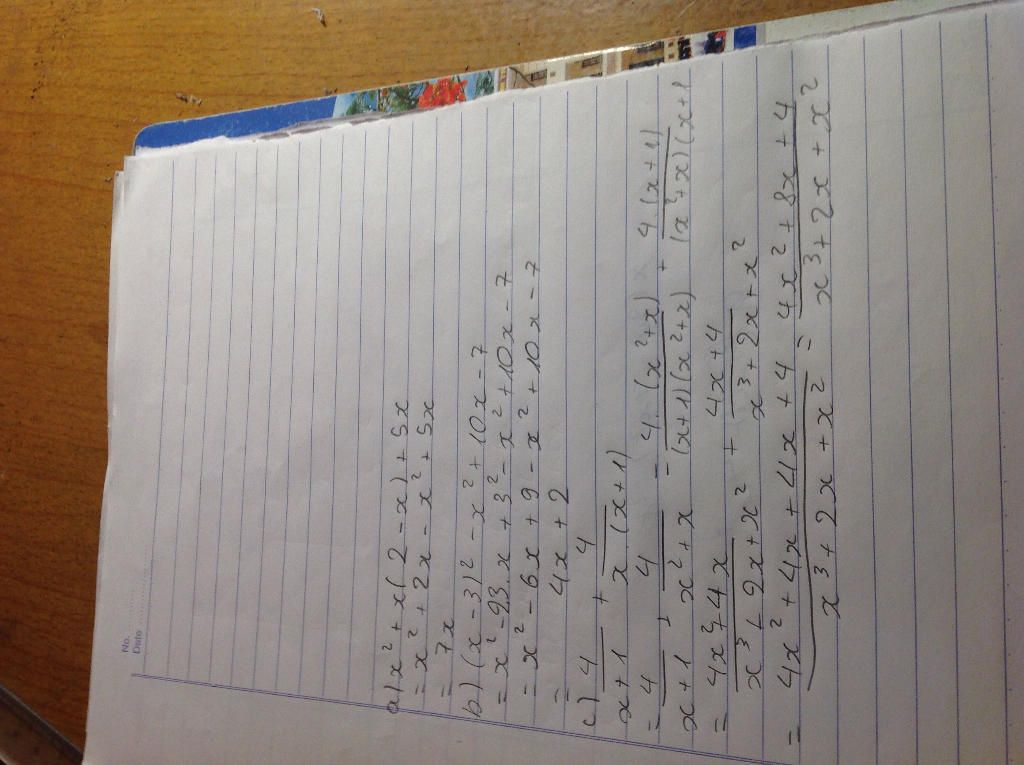 No.
Date
a) x² + x(2 - x) + 5x
= x² + 2x - x² + 5x
= 7x
b) (x - 3)² - x² + 10x - 7
= x² - 23.x + 3² - x² + 10x - 7
= x² - 6x + 9 - x² + 10x - 7
= 4x + 2
c) 4/(x + 1) + 4/(x(x + 1))
= 4/(x + 1) + 4/(x² + x) = 4.(x² + x)/((x + 1)(x² + x)) + 4.(x + 1)/((x² + x)(x + 1
= (4x² + 4x)/(x³ + 2x + x²) + (4x + 4)/(x³ + 2x + x²)
= (4x² + 4x + 4x + 4)/(x³ + 2x + x²) = (4x² + 8x + 4)/(x³ + 2x + x²)